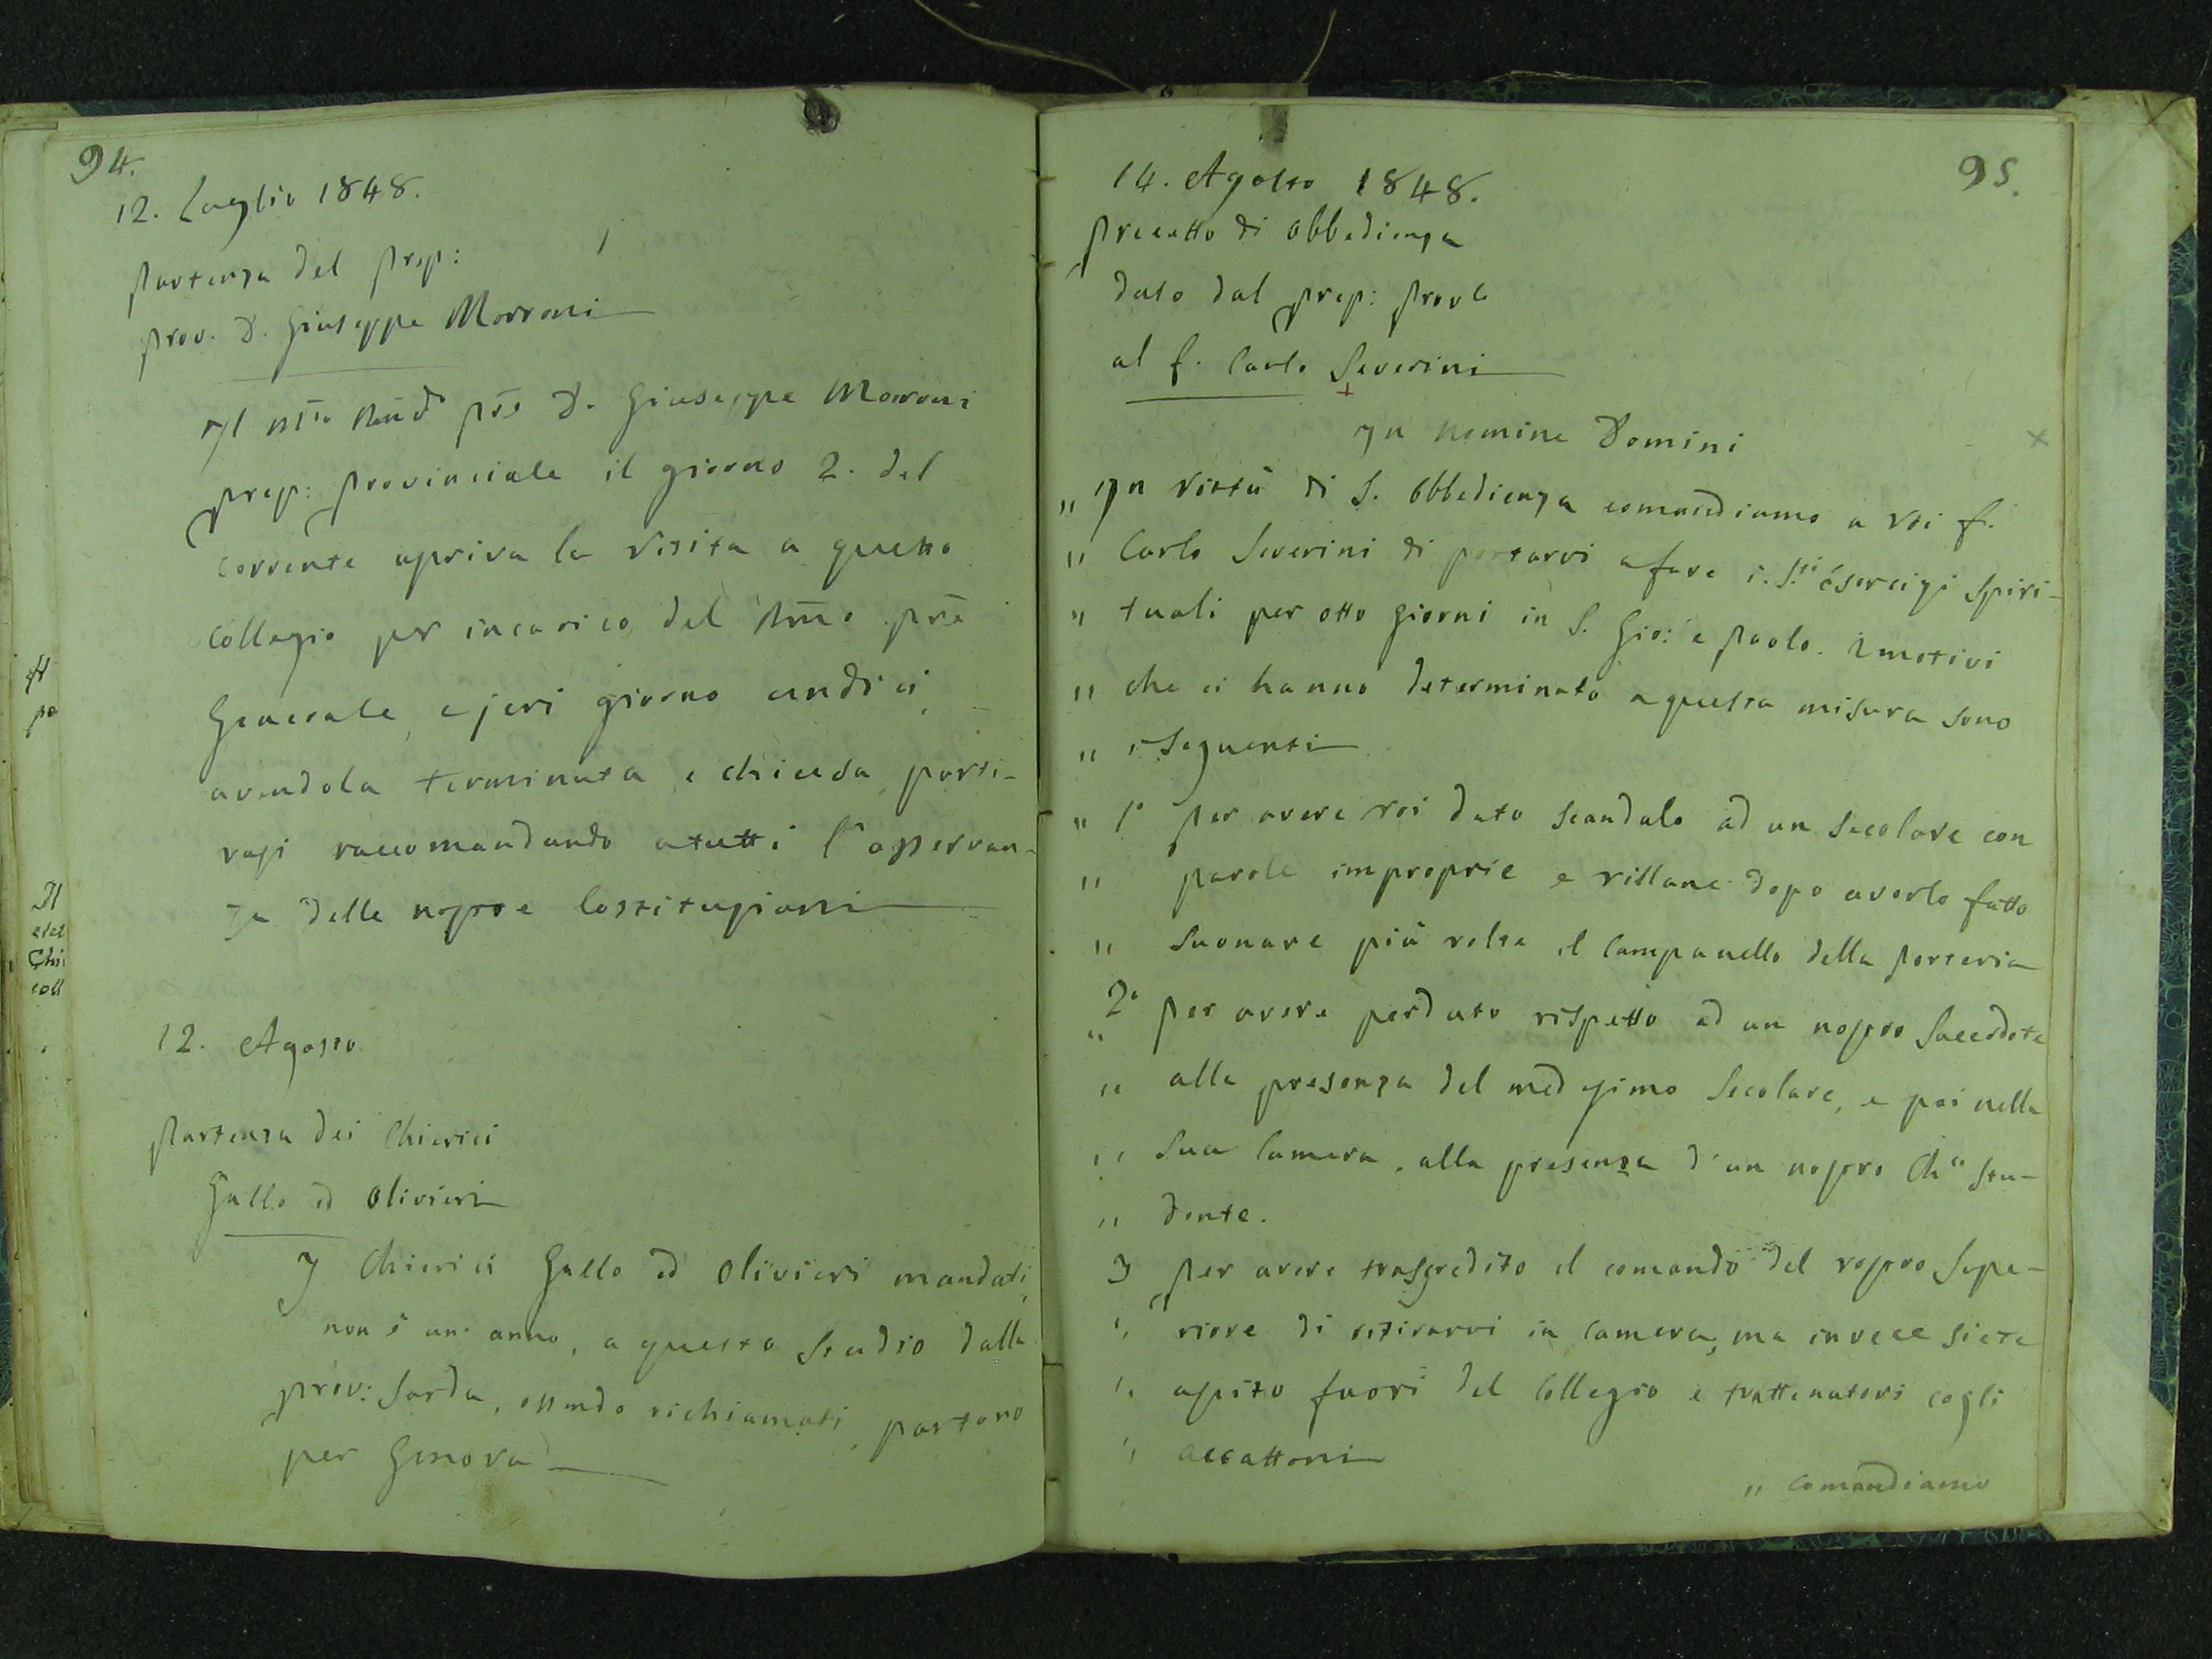 94.
12. Luglio 1848.
Partenza del Prep:
Prov. D. Giuseppe Morroni
Il Rñdo Pre D. Giuseppe Morroni
Prep: Provinciale il giorno 2. del
corrente apriva la visita a questo
Collegio per incarico del Rmo Pre
Generale, e jeri giorno undici,
avendola terminata e chiusa, parti-
vasi raccomandando a tutti l'osservan-
za delle nostre Costituzioni
12. Agosto
Partenza dei Chierici
Gallo ed Olivieri
I Chierici Gallo ed Olivieri mandati,
non è un anno, a questo studio dalla
Prov: Sarda, essendo richiamati, partono
per Genova
95.
14. Agosto 1848.
Precetto di obbedienza
dato dal Prep: Provle
al f. Carlo Severini
In Nomine Domini
" In virtù di S. Obbedienza comandiamo a Voi f.
" Carlo Severini di portarvi a fare i S.ti Esercizi Spiri-
" tuali per otto giorni in S. Gio: e Paolo. I motivi
" che ci hanno determinato a questa misura sono
" i seguenti
" 1° Per avere voi dato scandalo ad un secolare con
" parole improprie e villane dopo averlo fatto
" suonare più volte il Campanello della Porteria
" 2° Per avere perduto rispetto ad un nostro Sacerdote
" alla presenza del medesimo Secolare, e poi nella
" sua Camera, alla presenza d'un nostro Cho stu-
" dente.
3 Per avere trasgredito il comando del vostro Supe-
" riore di ritirarvi in Camera, ma invece siete
" uscito fuori del Collegio e trattenutovi cogli
" accattoni
" Comandiamo